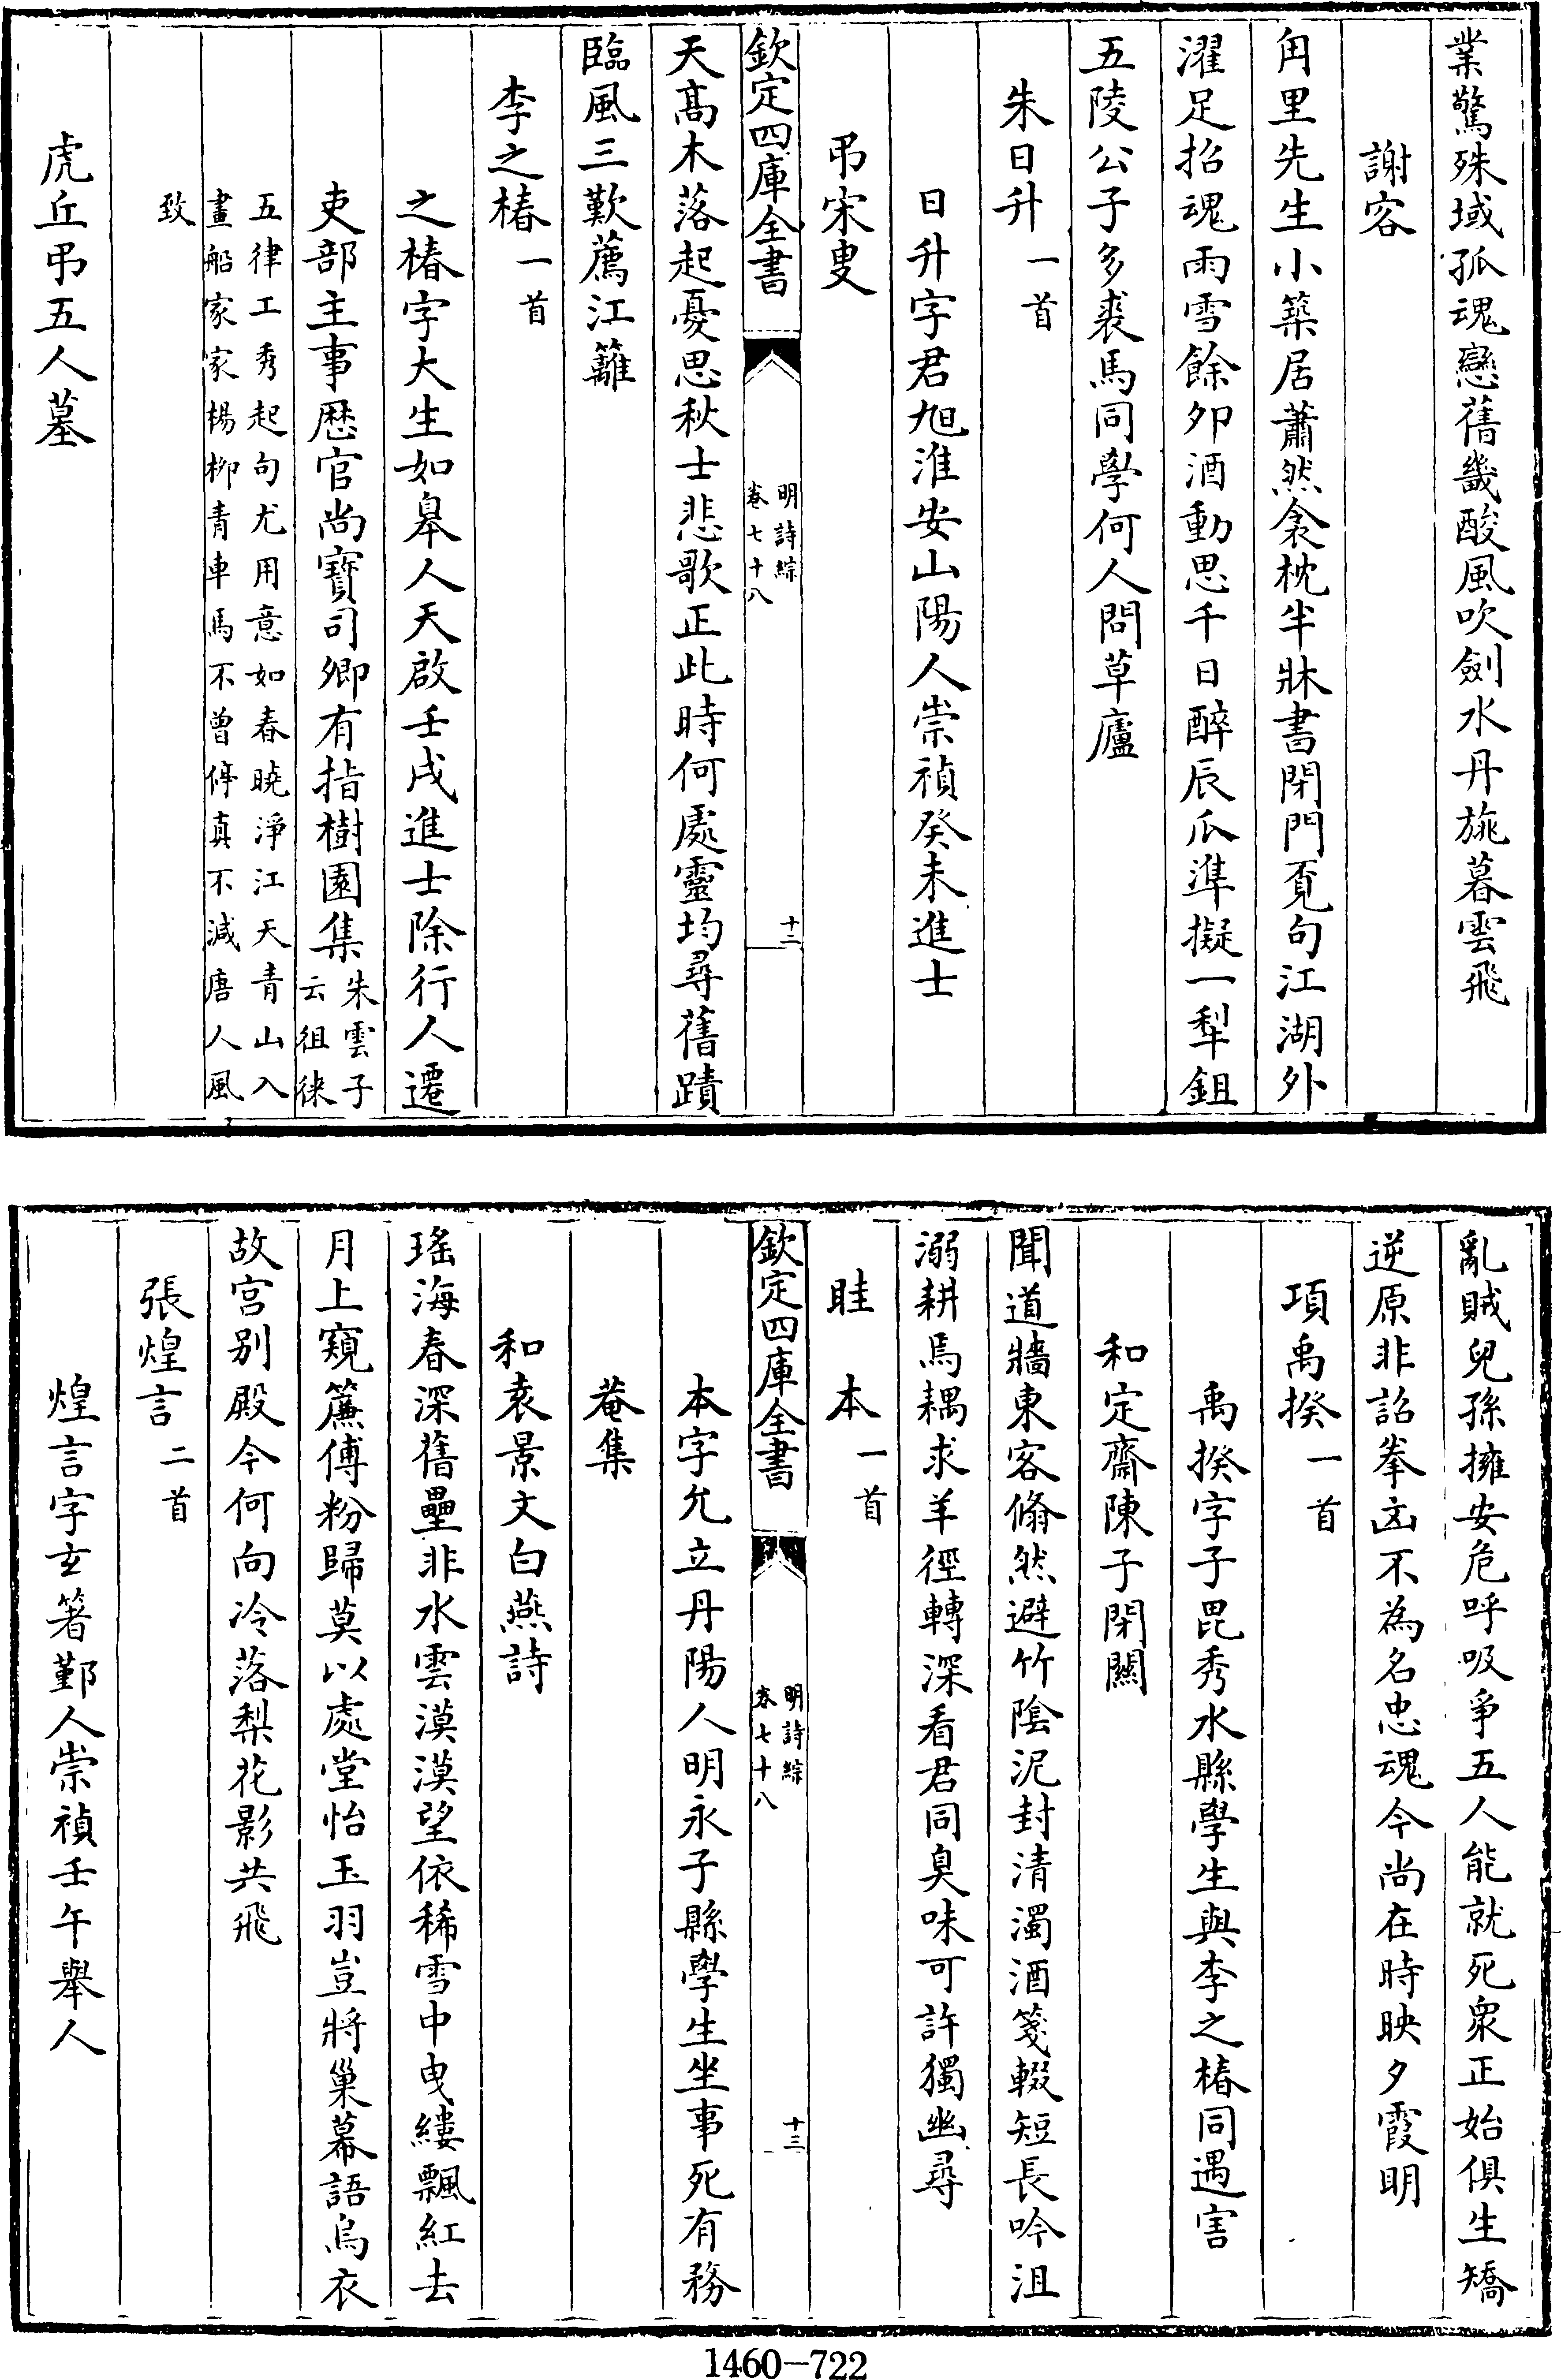 業驚殊域孤魂戀舊畿酸風吹劍水丹旐暮雲飛
謝客
甪里先生小築居蕭然衾枕半牀書閉門覔句江湖外
濯足招魂雨雪餘夘酒動思千日醉辰瓜準擬一犁鉏
五陵公子多裘馬同學何人問草廬
朱日升一首
日升字君旭淮安山陽人崇禎癸未進士
弔宋叟
欽定四庫全書
明詩綜
卷七十八
十二
天髙木落起憂思秋士悲歌正此時何處靈均尋舊蹟
臨風三歎薦江籬
李之椿一首
之椿字大生如臯人天啟壬戌進士除行人遷
吏部主事歴官尚寶司卿有指樹園集朱雲子
云徂徠
五律工秀起句尤用意如春曉淨江天青山入
畫船家家楊柳青車馬不曾停真不減唐人風
致
虎丘弔五人墓
亂賊兒孫擁安危呼吸爭五人能就死衆正始俱生矯
逆原非詔拳凶不為名忠魂今尚在時映夕霞明
項禹揆一首
禹揆字子毘秀水縣學生與李之椿同遇害
和定齋陳子閉關
聞道牆東客翛然避竹隂泥封清濁酒箋輟短長吟沮
溺耕焉耦求羊徑轉深看君同臭味可許獨幽尋
眭本一首
欽定四庫全書
明詩綜
卷七十八
十三
本字允立丹陽人明永子縣學生坐事死有務
菴集
和袁景文白燕詩
瑤海春深舊壘非水雲漠漠望依稀雪中曳縷飄紅去
月上窺簾傅粉歸莫以處堂怡玉羽豈將巢幕語烏衣
故宫别殿今何向冷落梨花影共飛
張煌言二首
煌言字玄箸鄞人崇禎壬午舉人
1460-722